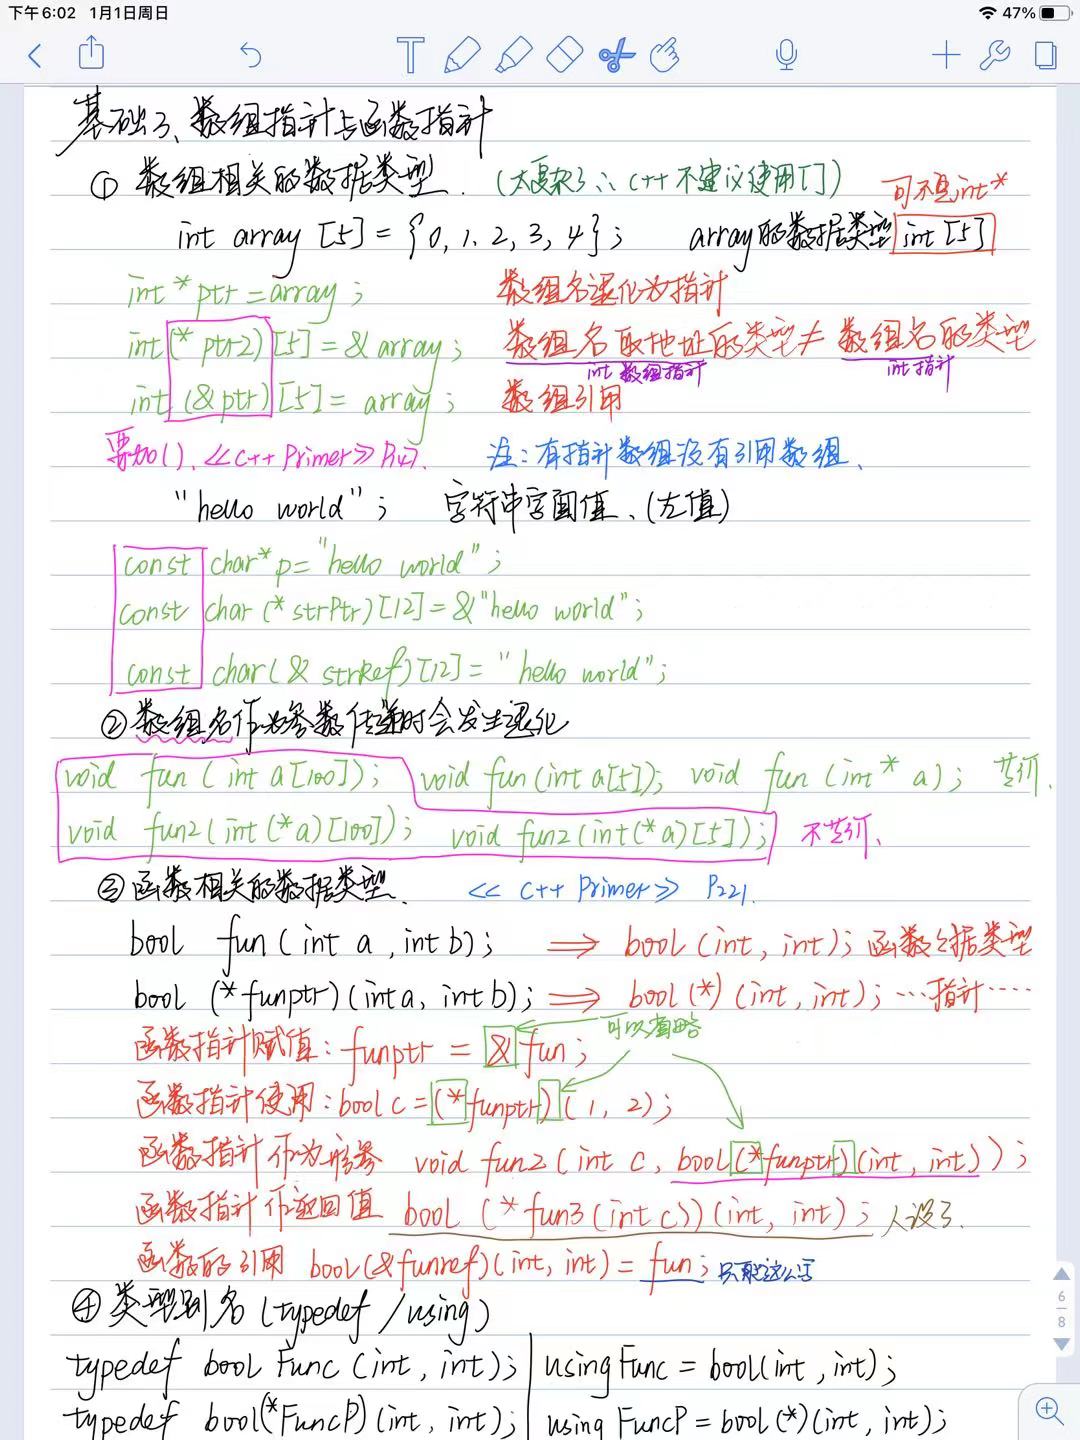 下午6:02 1月1日周日 47%
基础3、数组指针与函数指针
① 数组相关的数据类型. (太复杂了∴C++不建议使用[])
可不是int*
int array [5] = {0, 1, 2, 3, 4}; array的数据类型 int [5]
int * ptr = array ; 数组名退化为指针
int (* ptr2) [5] = & array ; 数组名取地址的类型 ≠ 数组名的类型
int 数组指针 int 指针
int (&ptr) [5] = array ; 数组引用
要加(). 《C++ Primer》 P147. 注:有指针数组没有引用数组.
"hello world" ; 字符串字面值、(左值)
const char* p = "hello world" ;
const char (* strPtr) [12] = &"hello world";
const char (& strRef) [12] = "hello world";
② 数组名作为参数传递时会发生退化
void fun (int a[100]); void fun (int a[5]); void fun (int * a); 等价.
void fun2 (int (*a) [100]); void fun2 (int (*a) [5]); 不等价.
③ 函数相关的数据类型. 《C++ Primer》 P221.
bool fun ( int a , int b); ⇒ bool (int, int); 函数数据类型
bool (* funptr) (int a, int b); ⇒ bool (*) (int, int); …指针……
可以省略
函数指针赋值: funptr = & fun;
函数指针使用: bool c = (* funptr) (1, 2);
函数指针作为形参 void fun2 ( int c, bool (*funptr) (int, int) );
函数指针作返回值 bool (* fun3 (int c)) (int, int) ; 人没了.
函数的引用 bool (& funref) (int, int) = fun ; 只能这么写
④ 类型别名 (typedef / using)
6
8
typedef bool Func (int, int); using Func = bool(int, int);
typedef bool(*FuncP) (int, int); using FuncP = bool (*) (int, int);